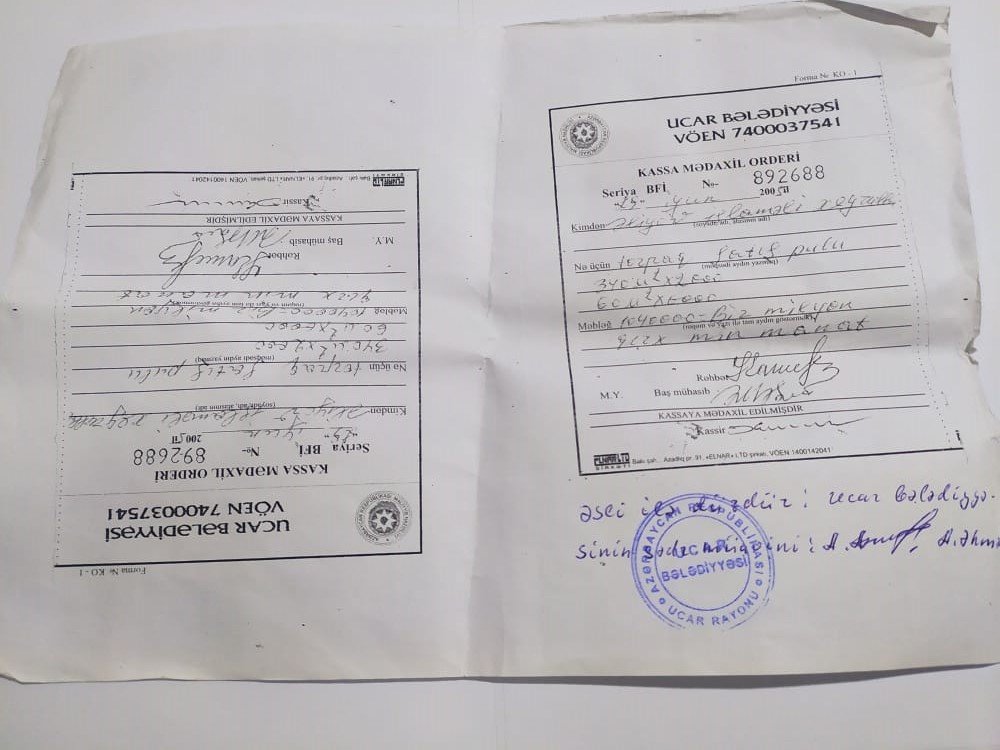 Forma № KO - 1
UCAR BƏLƏDİYYƏSİ
VÖEN 7400037541
KASSA MƏDAXİL ORDERİ
Seriya BFİ № 892688
"24" iyun 200 il
Kimdən
(soyadı, adı, atasının adı)
Nə üçün torpaq satış pulu
(məqsədi aydın yazmaq)
340 m²x2000
60 m²x6000
Məbləğ 1040000= Bir milyon
(rəqəm və yazı ilə tam aydın göstərməli)
qırx min manat
Rəhbər
M.Y. Baş mühasib
KASSAYA MƏDAXİL EDİLMİŞDİR
Kassir
ELNAR LTD ŞİRKƏTİ Bakı şəh., Azadlıq pr. 91, «ELNAR» LTD şirkəti, VÖEN 1400142041
Forma № KO - 1
UCAR BƏLƏDİYYƏSİ
VÖEN 7400037541
KASSA MƏDAXİL ORDERİ
Seriya BFİ № 892688
"24" iyun 200 il
Kimdən
(soyadı, adı, atasının adı)
Nə üçün torpaq satış pulu
(məqsədi aydın yazmaq)
340 m²x2000
60 m²x6000
Məbləğ 1040000= Bir milyon
(rəqəm və yazı ilə tam aydın göstərməli)
qırx min manat
Rəhbər
M.Y. Baş mühasib
KASSAYA MƏDAXİL EDİLMİŞDİR
Kassir
ELNAR LTD ŞİRKƏTİ Bakı şəh., Azadlıq pr. 91, «ELNAR» LTD şirkəti, VÖEN 1400142041
əsli ilə düzdür: Ucar bələdiyyə-
sinin sədr müavini: A. A.Əhm
AZƏRBAYCAN RESPUBLİKASI
UCAR
BƏLƏDİYYƏSİ
UCAR RAYONU